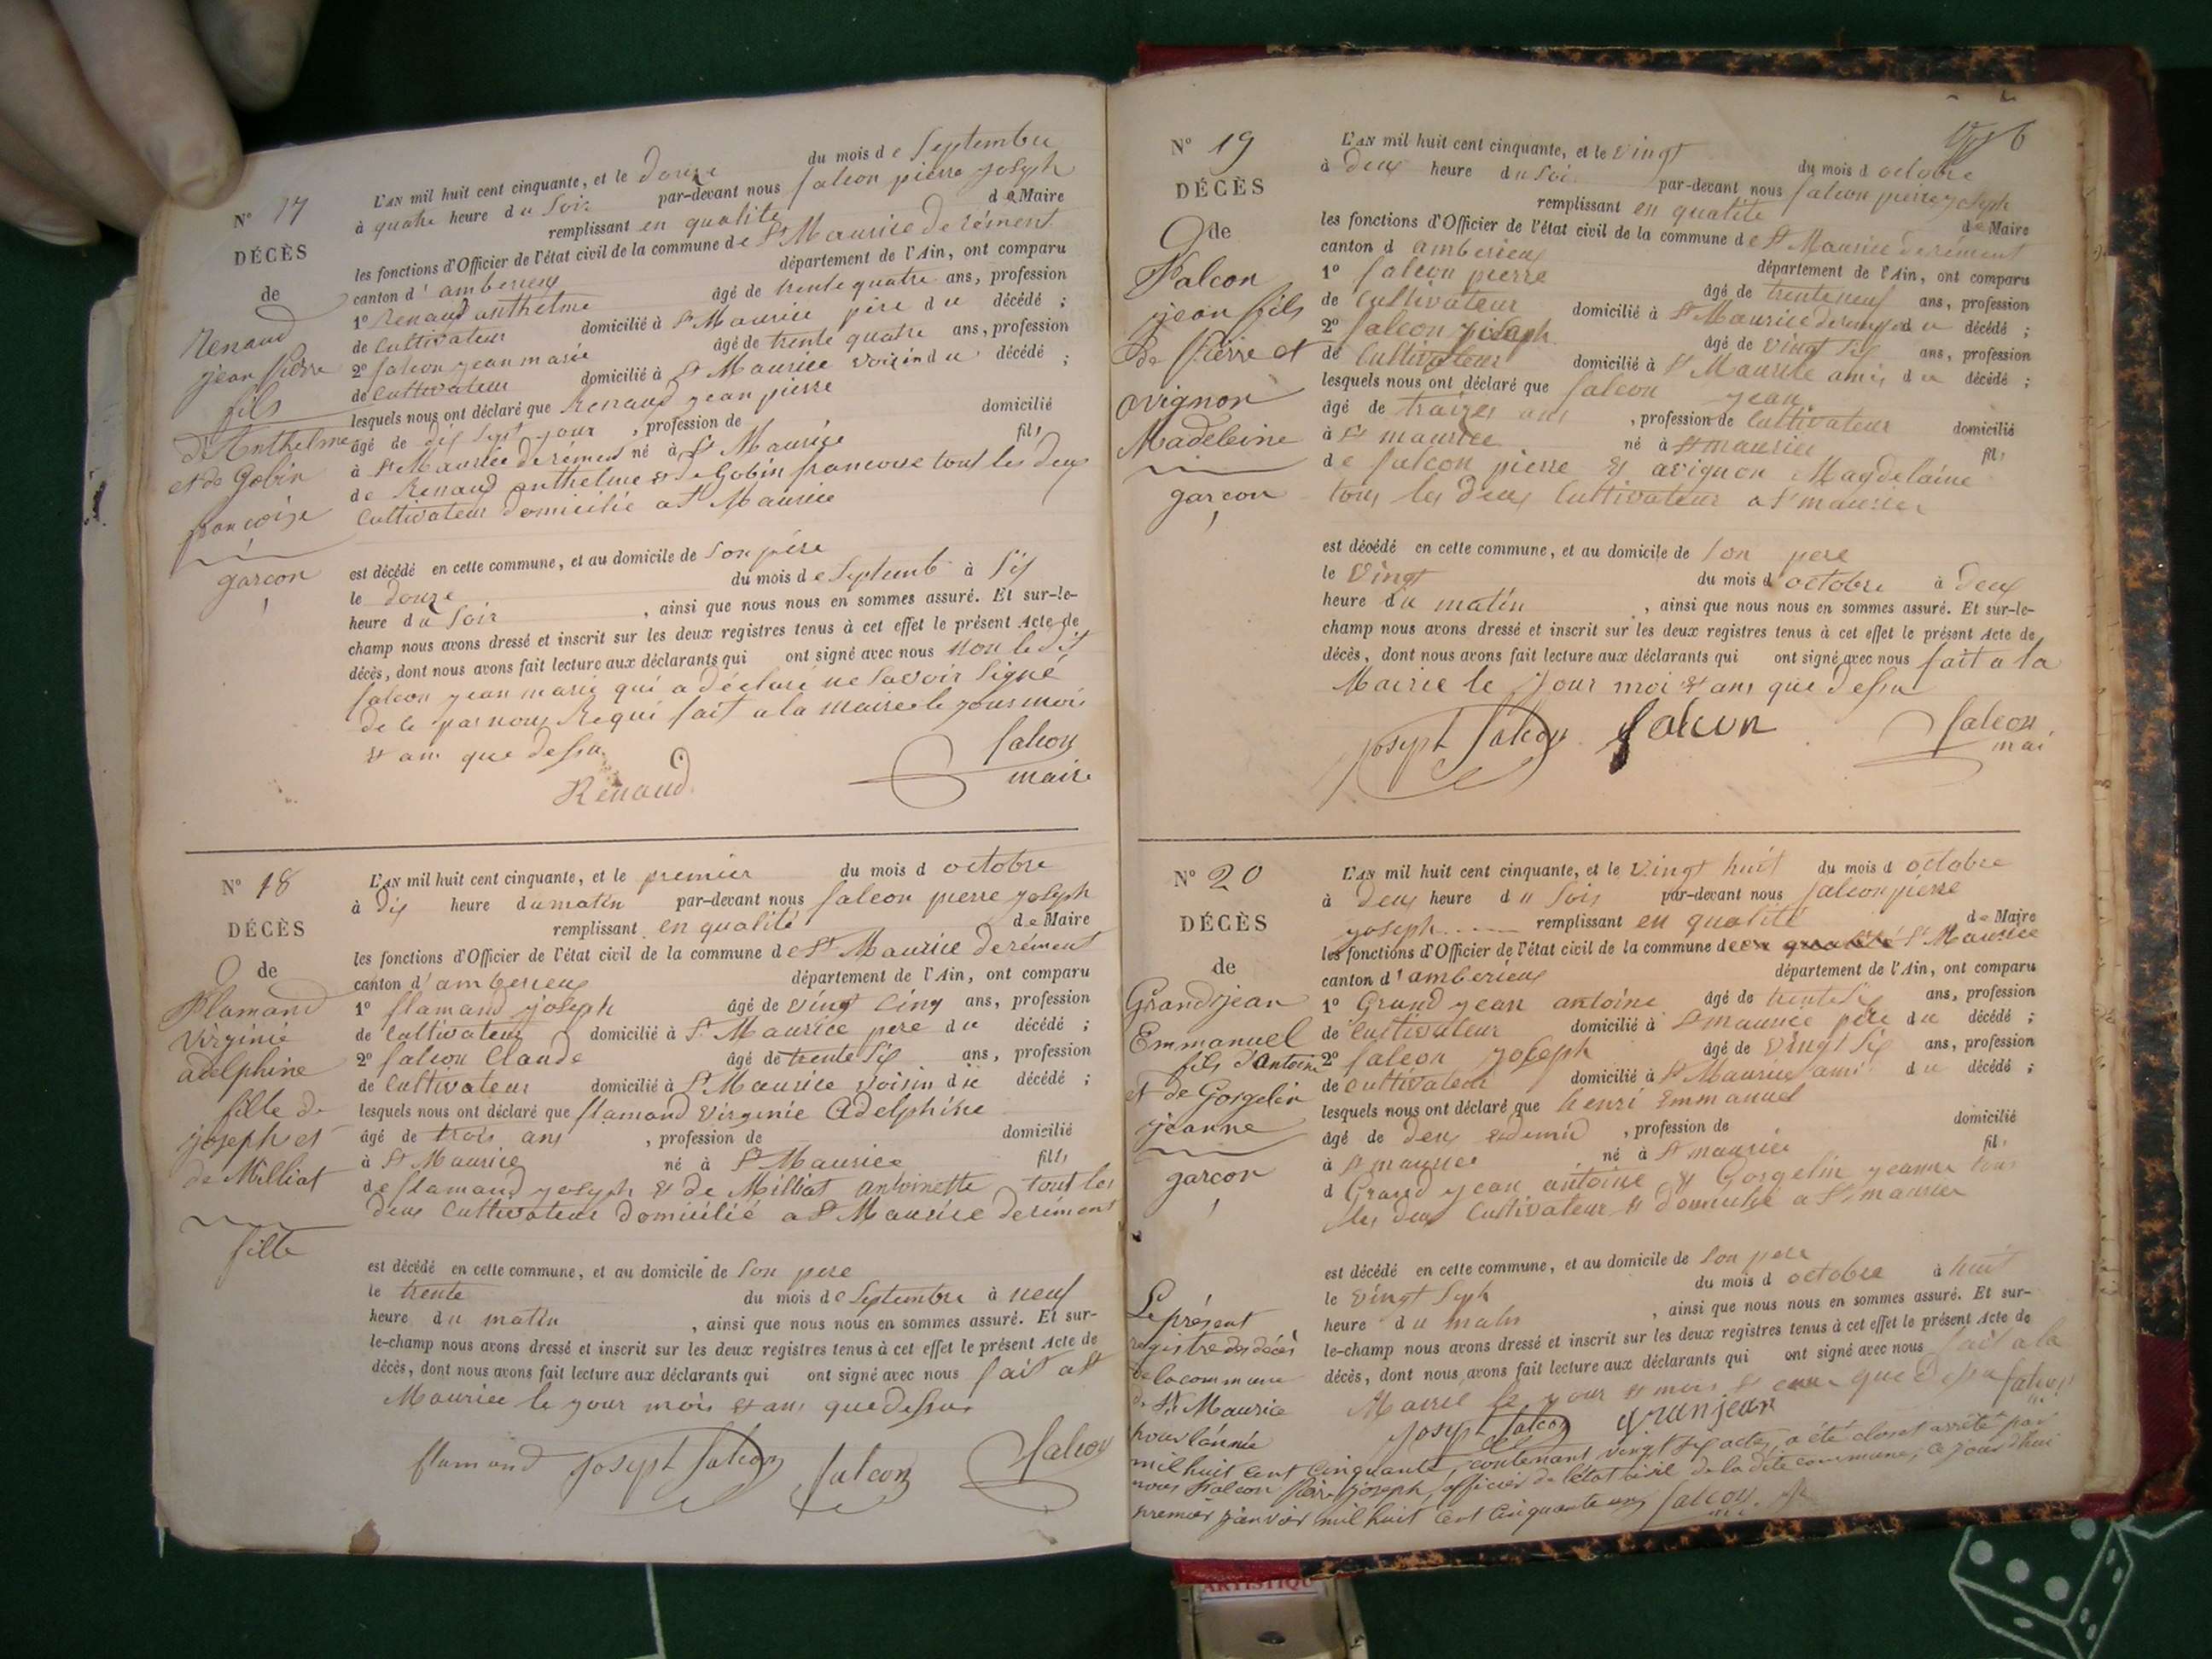 N° 17
DÉCÈS
de
Renaud
jean Pierre
fils
d'Anthelme
et de Gobin
françoise
garcon
L'AN mil huit cent cinquante, et le douze du mois de Septembre
à quatre heure du Soir par-devant nous falcon pierre joseph
remplissant en qualité de Maire
les fonctions d'Officier de l'état civil de la commune de St Maurice de rément
canton d'amberieux département de l'Ain, ont comparu
1° Renaud anthelme âgé de trente quatre ans, profession
de Cultivateur domicilié à St Maurice père du décédé ;
2° falcon jean marie âgé de trente quatre ans, profession
de Cultivateur domicilié à St Maurice voisin du décédé ;
lesquels nous ont déclaré que Renaud jean pierre
âgé de dix sept jour , profession de domicilié
à St Maurice de rément né à St Maurice fils
de Renaud anthelme et de Gobin francoise tout les deux
Cultivateur domicilié a St Maurice
est décédé en cette commune, et au domicile de Son père
le douze du mois de Septemb à Six
heure du Soir , ainsi que nous nous en sommes assuré. Et sur-le-
champ nous avons dressé et inscrit sur les deux registres tenus à cet effet le présent Acte de
décès, dont nous avons fait lecture aux déclarants qui ont signé avec nous non le dit
falcon jean marie qui a déclaré ne Savoir Signé
de le par nous Requi fait a la mairie le jour moi
et an que dessu
Renaud
falcon
maire
N° 18
DÉCÈS
de
Flamand
Virginie
adelphine
fille de
joseph et
de Milliat
fille
L'AN mil huit cent cinquante, et le premier du mois d octobre
à dix heure du matin par-devant nous falcon pierre joseph
remplissant en qualité de Maire
les fonctions d'Officier de l'état civil de la commune de St Maurice de rément
canton d'amberieux département de l'Ain, ont comparu
1° flamand joseph âgé de vingt Cinq ans, profession
de Cultivateur domicilié à St Maurice pere du décédé ;
2° falcon Claude âgé de trente Six ans, profession
de Cultivateur domicilié à St Maurice voisin die décédé ;
lesquels nous ont déclaré que flamand virginie Adelphine
âgé de trois ans , profession de domicilié
à St Maurice né à St Maurice fille
de flamand joseph et de Milliat antoinette tout les
deux Cultivateur domicilié a St Maurice de rément
est décédé en cette commune, et au domicile de Son pere
le trente du mois de Septembre à neuf
heure du matin , ainsi que nous nous en sommes assuré. Et sur-
le-champ nous avons dressé et inscrit sur les deux registres tenus à cet effet le présent Acte de
décès, dont nous avons fait lecture aux déclarants qui ont signé avec nous fait a St
Maurice le jour mois et ans que dessus
flamand joseph falcon falcon falcon
N° 19
DÉCÈS
de
Falcon
jean fils
de Pierre et
avignon
Madeleine
garcon
L'AN mil huit cent cinquante, et le vingt du mois d octobre
à deux heure du Soi par-devant nous falcon pierre joseph
remplissant en qualité de Maire
les fonctions d'Officier de l'état civil de la commune de St Maurice de rément
canton d amberieux département de l'Ain, ont comparu
1° falcon pierre âgé de trente neuf ans, profession
de Cultivateur domicilié à St Maurice du décédé ;
2° falcon joseph âgé de vingt Six ans, profession
de Cultivateur domicilié à St Maurice amis du décédé ;
lesquels nous ont déclaré que falcon jean
âgé de traizes ans , profession de Cultivateur domicilié
à St maurice né à St maurice fils
de falcon pierre et avignon Magdelaine
tous les deux Cultivateur a St maurice
est décédé en cette commune, et au domicile de Son pere
le vingt du mois d'octobre à deux
heure du matin , ainsi que nous nous en sommes assuré. Et sur-le-
champ nous avons dressé et inscrit sur les deux registres tenus à cet effet le présent Acte de
décès, dont nous avons fait lecture aux déclarants qui ont signé avec nous fait a la
Mairie le jour moi et ans que dessu
joseph falcon falcon falcon
mai
N° 20
DÉCÈS
de
Grandjean
Emmanuel
fils d'Antoine
et de Gosgelin
jeanne
garcon
L'AN mil huit cent cinquante, et le vingt huit du mois d octobre
à deux heure du Soir par-devant nous falcon pierre
joseph remplissant en qualité de Maire
les fonctions d'Officier de l'état civil de la commune de St Maurice
canton d'amberieux département de l'Ain, ont comparu
1° Grand jean antoine âgé de trente Six ans, profession
de Cultivateur domicilié à St maurice père du décédé ;
2° falcon joseph âgé de vingt Six ans, profession
de Cultivateur domicilié à St Maurice ami du décédé ;
lesquels nous ont déclaré que henri Emmanuel
âgé de deux et demie , profession de domicilié
à St maurice né à St maurice fils
d Grand jean antoine et Gosgelin jeanne tous
les deux Cultivateur et domicilié a St maurice
est décédé en cette commune, et au domicile de Son pere
le vingt Sept du mois d octobre à huit
heure du matin , ainsi que nous nous en sommes assuré. Et sur-
le-champ nous avons dressé et inscrit sur les deux registres tenus à cet effet le présent Acte de
décès, dont nous avons fait lecture aux déclarants qui ont signé avec nous fait a la
Mairie le jour et mois et que dessu falcon
joseph falcon granjean
Le présent
registre des décès
de la commune
de St Maurice
pour l'année
mil huit cent cinquante, contenant vingt actes, a été clos et arrêté par
nous Falcon Pierre joseph, officier de l'état civil de la dite commune, ce jourd'hui
premier janvier mil huit cent cinquante un falcon
ARTISTIQU